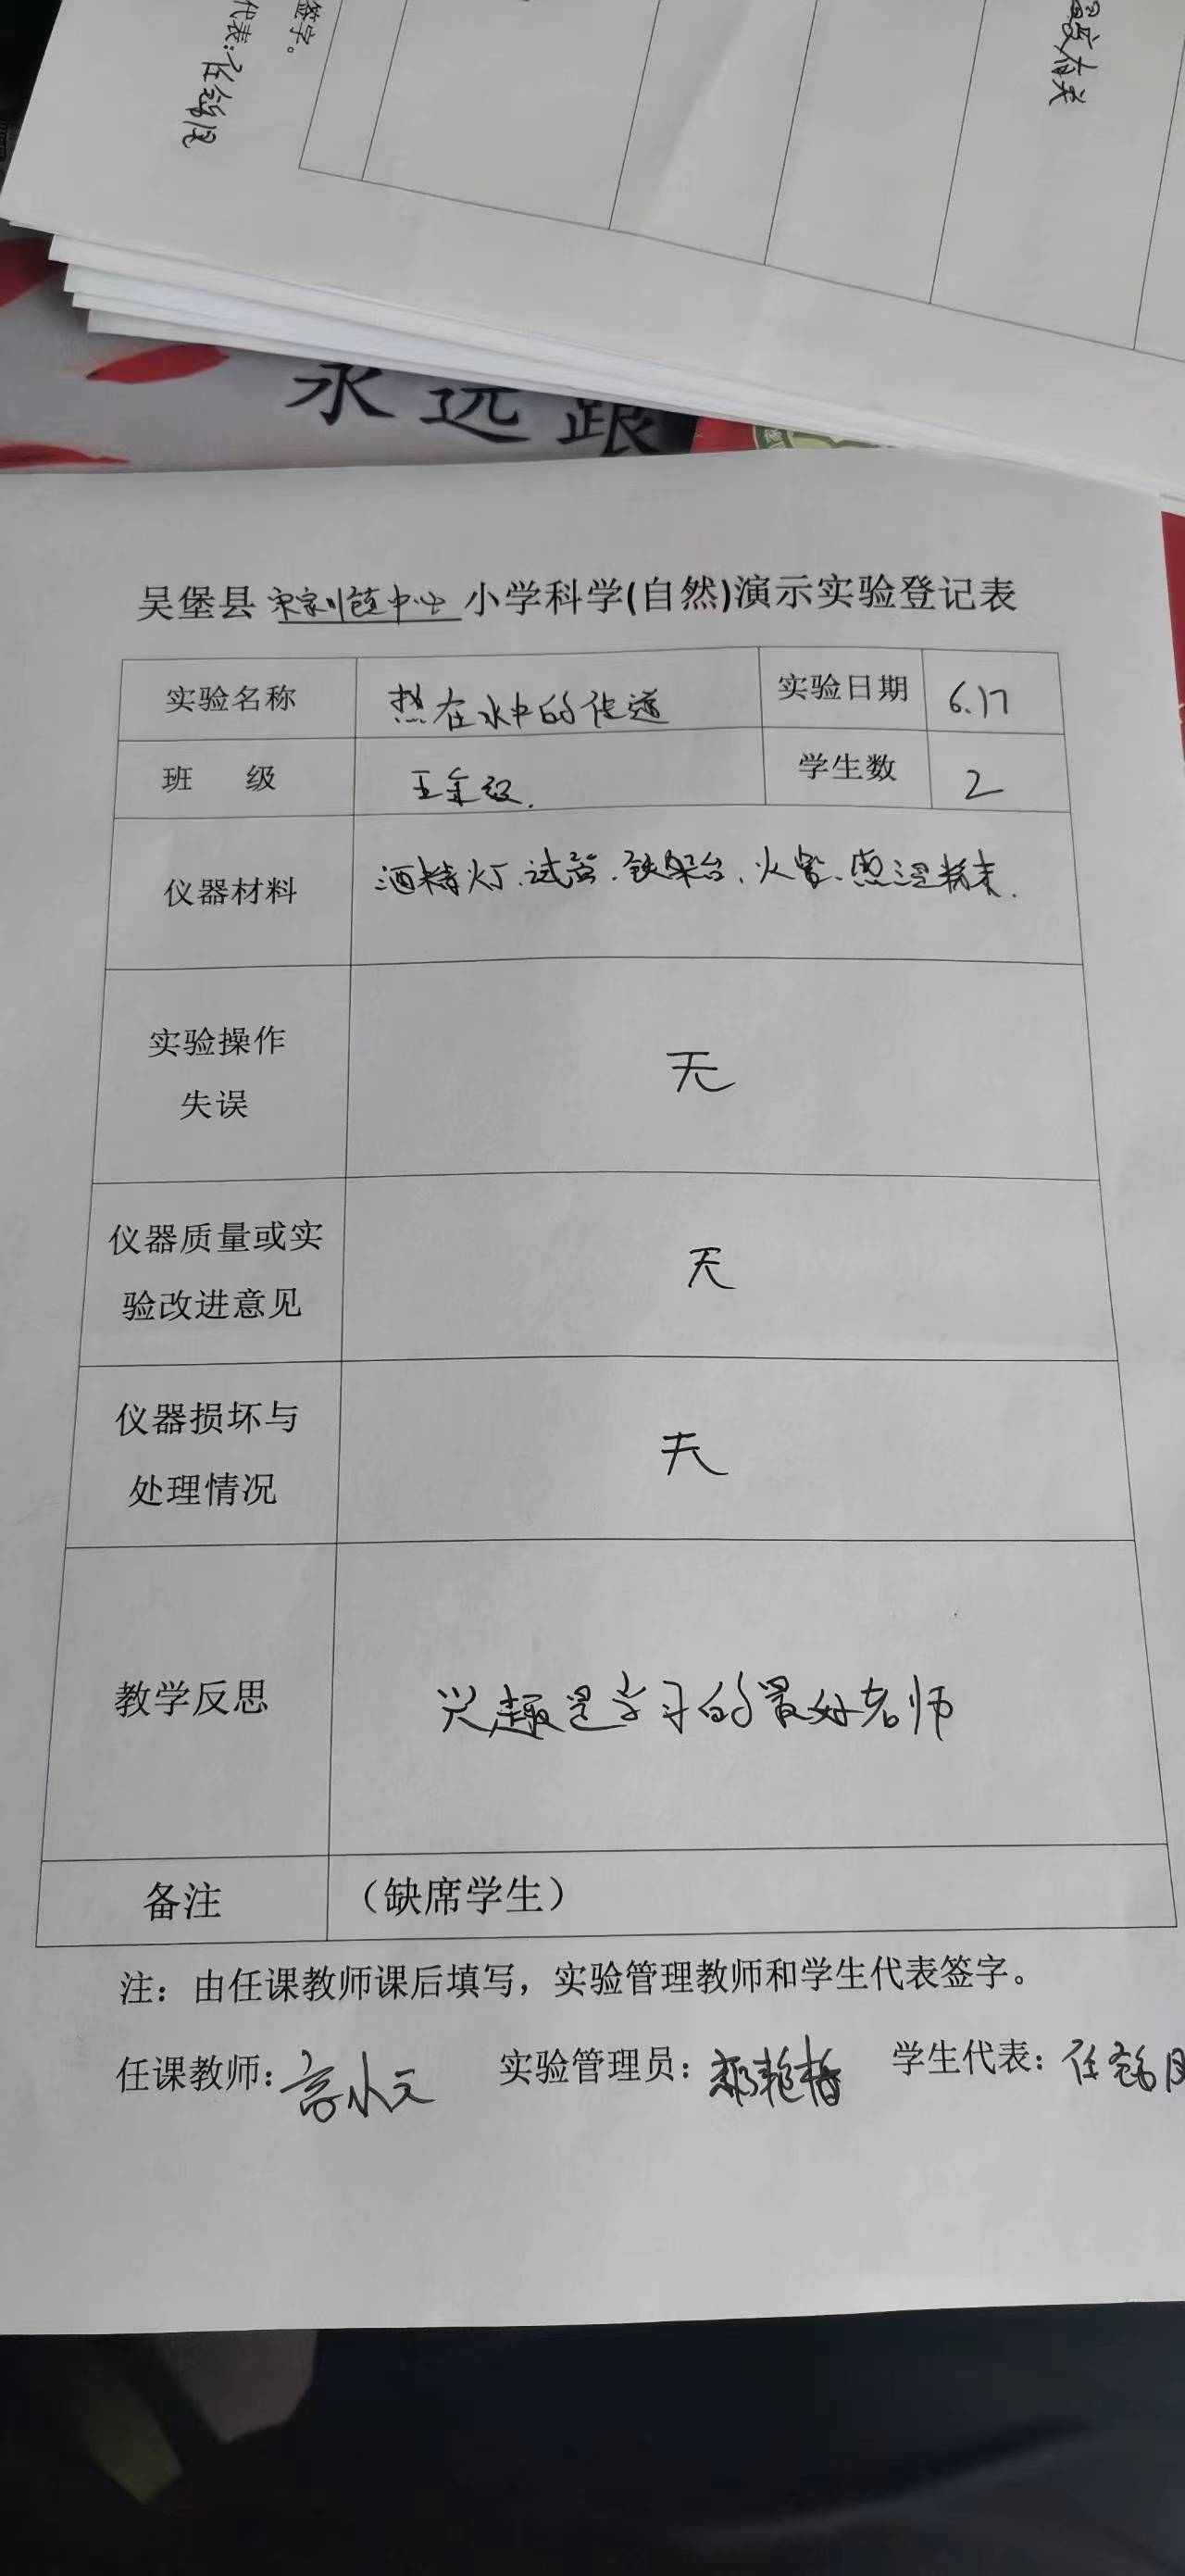 签字。
代表:任
有关
永远跟
吴堡县 宋家川镇中心 小学科学(自然)演示实验登记表
实验名称 热在水中的传递 实验日期 6.17
班 级 五年级. 学生数 2
仪器材料 酒精灯、试管、铁架台、火柴、感温粉末.
实验操作
失误
无
仪器质量或实
验改进意见
无
仪器损坏与
处理情况
无
教学反思 兴趣是学习的最好老师
备注 (缺席学生)
注: 由任课教师课后填写, 实验管理教师和学生代表签字。
任课教师: 实验管理员: 学生代表: 任